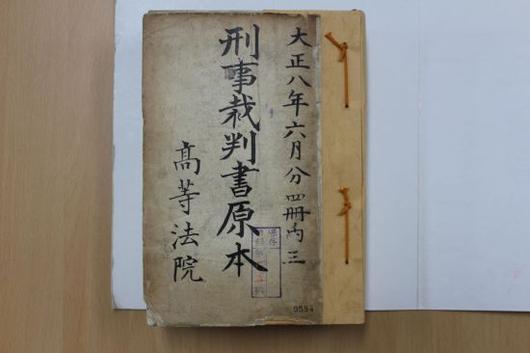 大正八年六月分四冊內三
刑事裁判書原本
高等法院